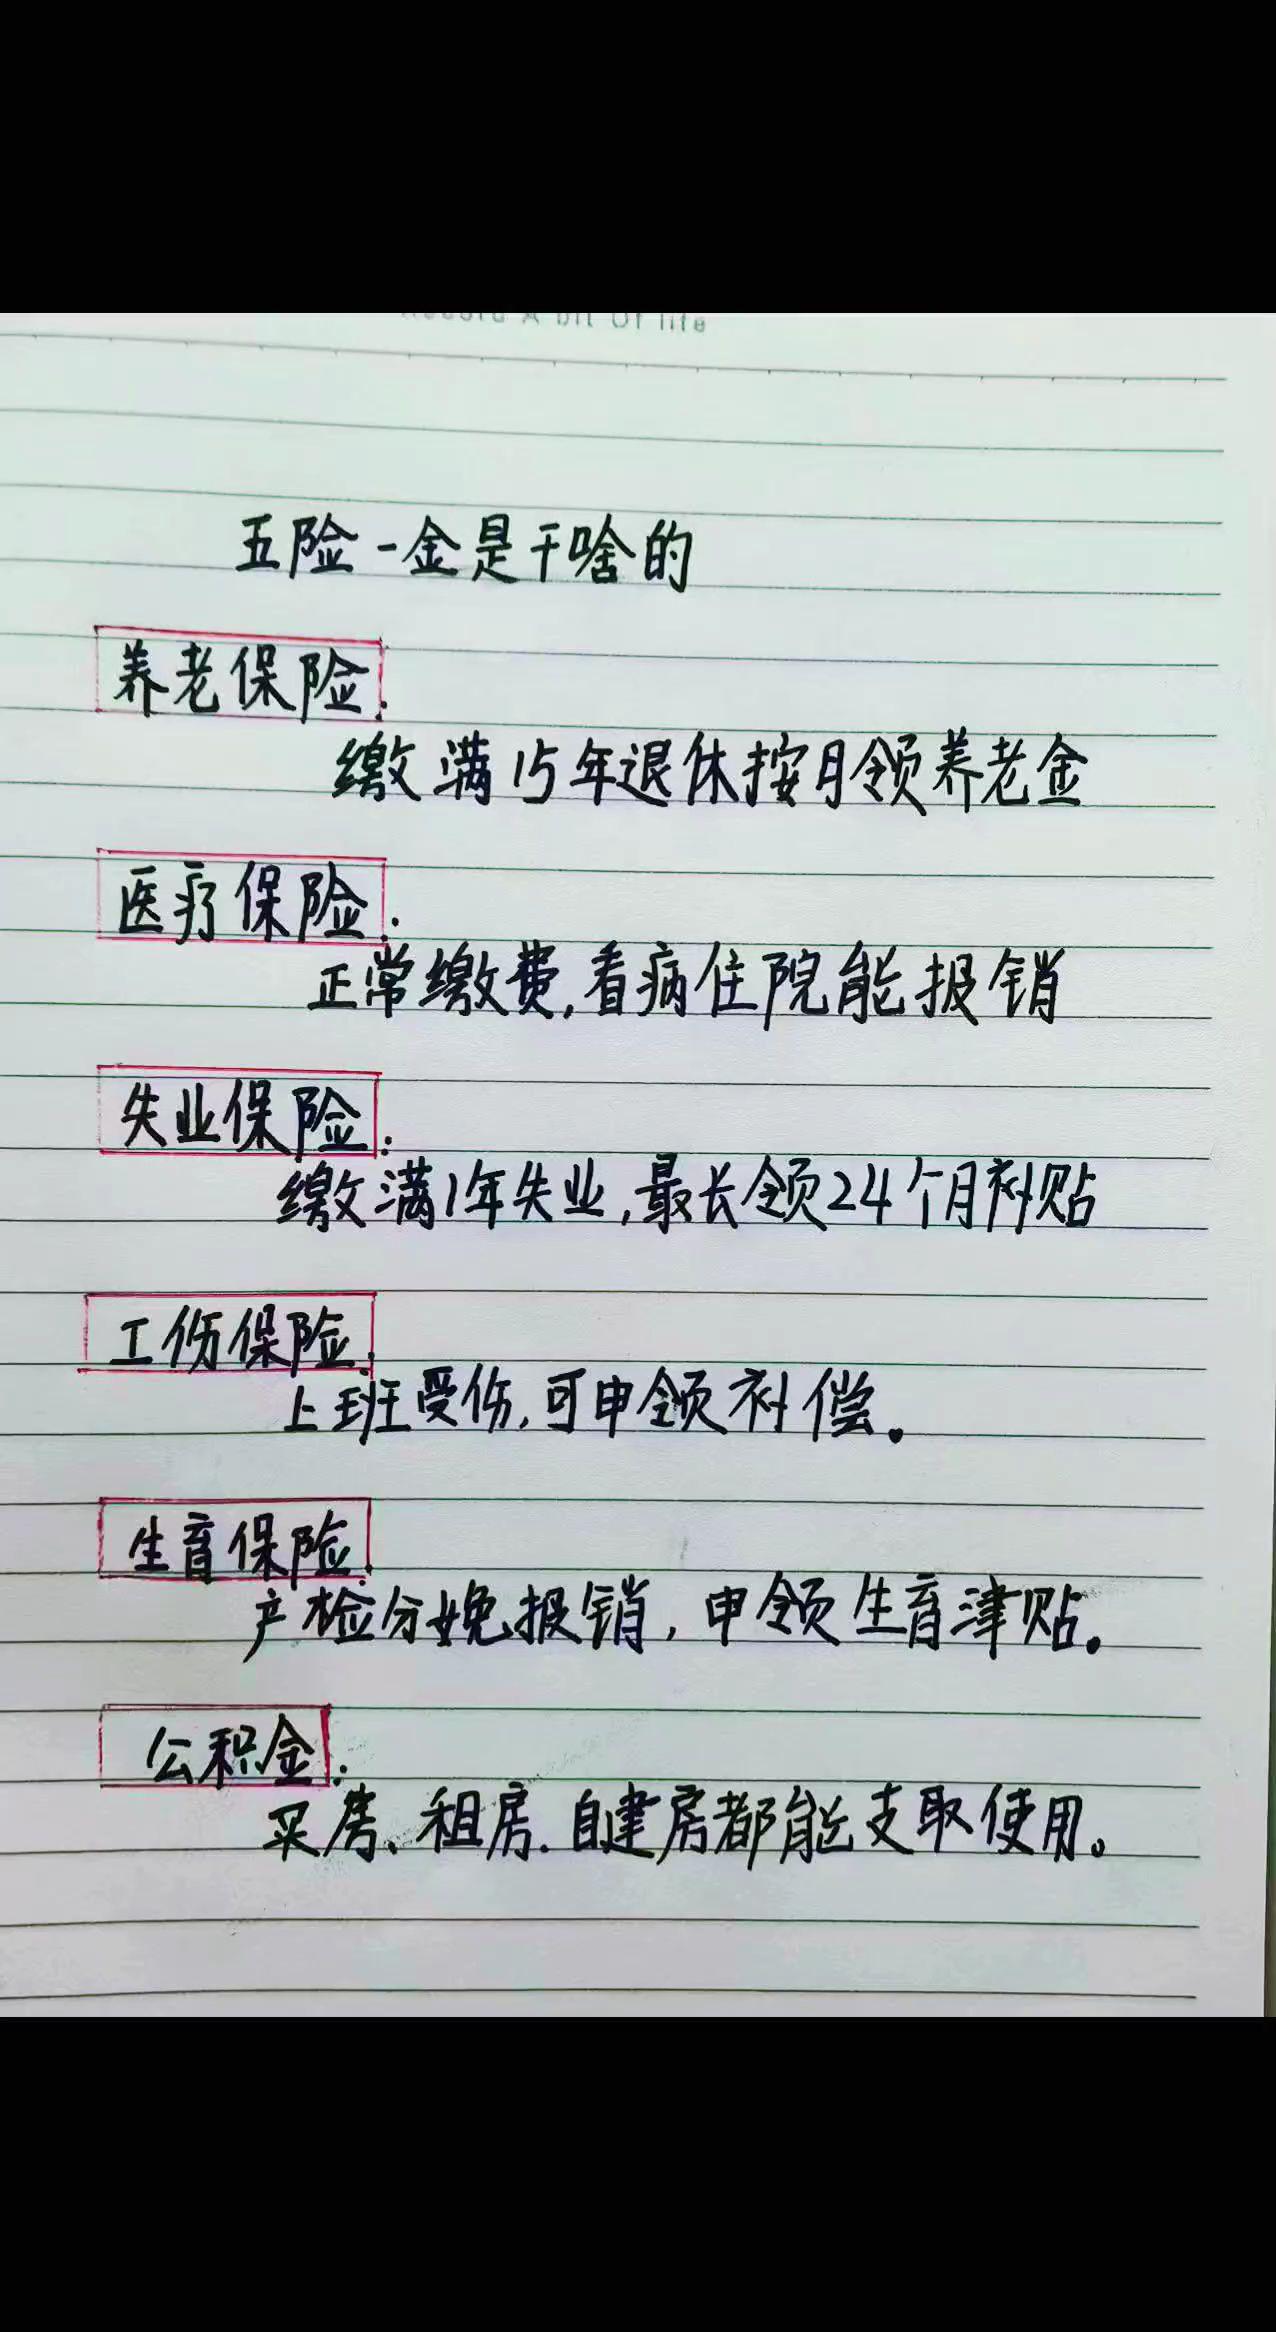 Record A bit Of life
五险一金是干啥的
养老保险.
缴满15年退休按月领养老金
医疗保险.
正常缴费,看病住院能报销
失业保险.
缴满1年失业,最长领24个月补贴
工伤保险.
上班受伤,可申领补偿。
生育保险.
产检分娩报销,申领生育津贴。
公积金.
买房、租房.自建房都能支取使用。